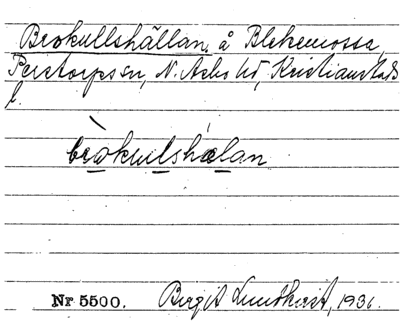 Brokullshällan, å Blekemossa,
Perstorps sn, N. Åsbo hd, Kristianstads
l.
bròkulshǽlan
Nr 5500. Birgit Lundkvist, 1936.